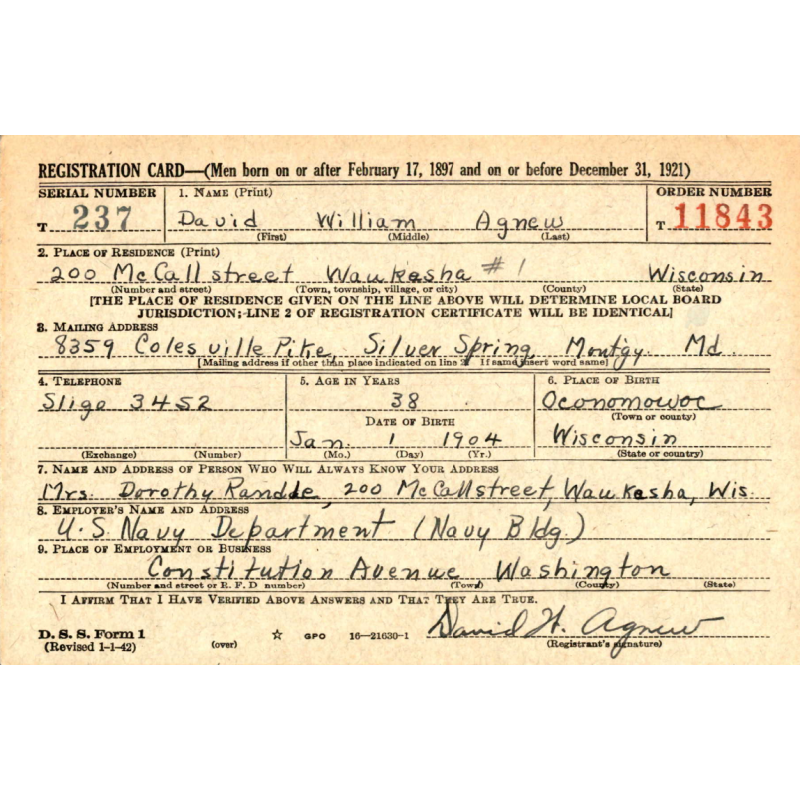 REGISTRATION CARD—(Men born on or after February 17, 1897 and on or before December 31, 1921)
SERIAL NUMBER 1. NAME (Print) ORDER NUMBER
T 237 David William Agnew T 11843
(First) (Middle) (Last)
2. PLACE OF RESIDENCE (Print)
200 McCall street Waukesha #1 Wisconsin
(Number and street) (Town, township, village, or city) (County) (State)
[THE PLACE OF RESIDENCE GIVEN ON THE LINE ABOVE WILL DETERMINE LOCAL BOARD
JURISDICTION; LINE 2 OF REGISTRATION CERTIFICATE WILL BE IDENTICAL]
3. MAILING ADDRESS
8359 Colesville Pike, Silver Spring Montgy. Md.
[Mailing address if other than place indicated on line 2. If same insert word same]
4. TELEPHONE 5. AGE IN YEARS 6. PLACE OF BIRTH
Sligo 3452 38 Oconomowoc
DATE OF BIRTH (Town or county)
Jan. 1 1904 Wisconsin
(Exchange) (Number) (Mo.) (Day) (Yr.) (State or country)
7. NAME AND ADDRESS OF PERSON WHO WILL ALWAYS KNOW YOUR ADDRESS
Mrs. Dorothy Randle, 200 McCall street, Waukesha, Wis.
8. EMPLOYER'S NAME AND ADDRESS
U.S. Navy Department (Navy Bldg.)
9. PLACE OF EMPLOYMENT OR BUSINESS
Constitution Avenue, Washington
(Number and street or R. F. D number) (Town) (County) (State)
I AFFIRM THAT I HAVE VERIFIED ABOVE ANSWERS AND THAT THEY ARE TRUE.
David W. Agnew
D. S. S. Form 1 (over) ☆ GPO 16—21630-1 (Registrant's signature)
(Revised 1-1-42)